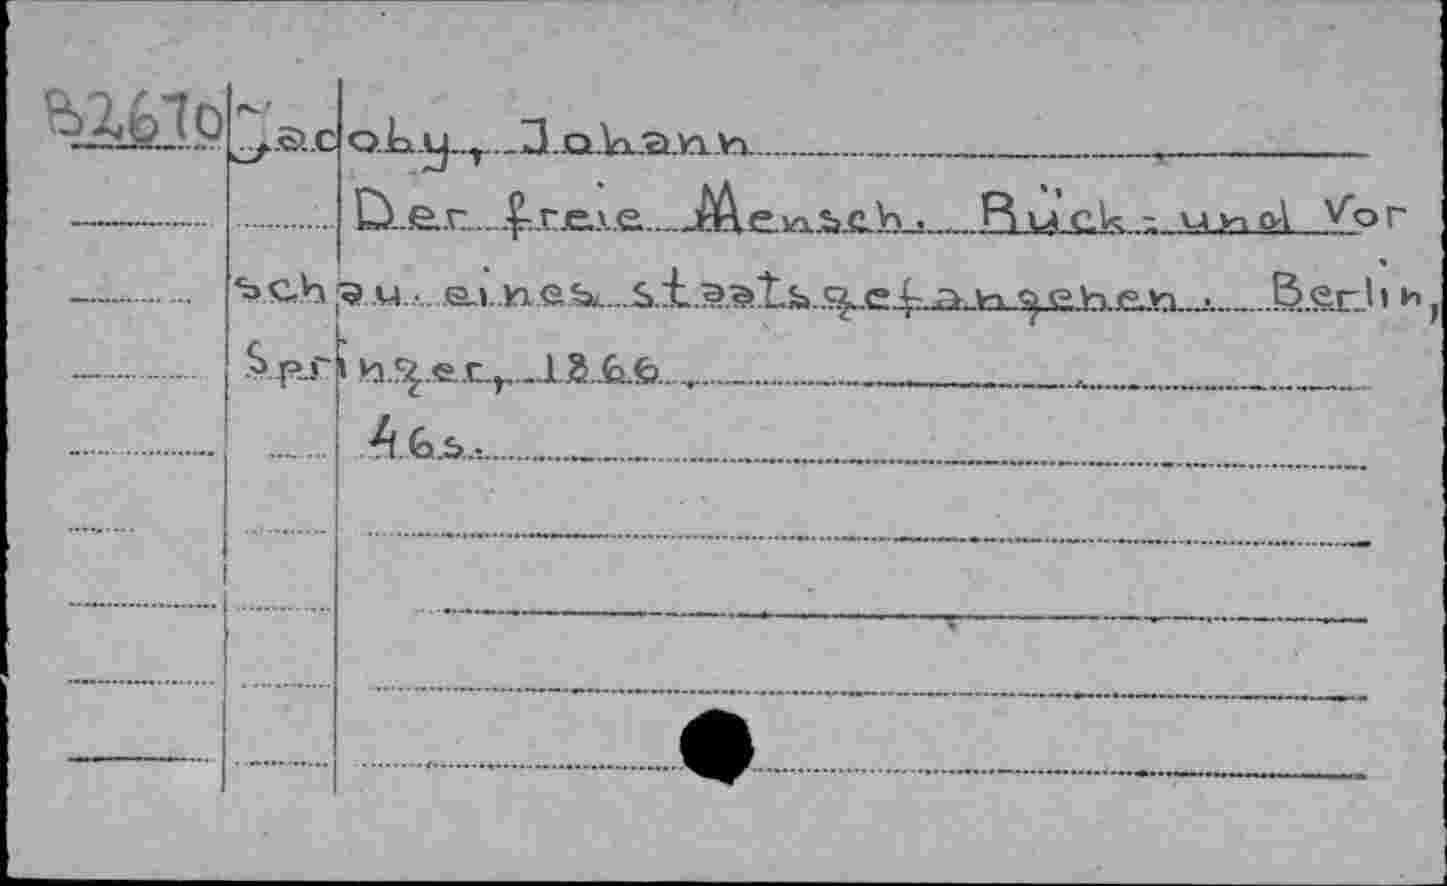 B2670 Jacoby, Johann
Der freie Mensch. Rück- und Vor
schau eines staatsgefangehen. Berlin,
Springer, 1866.
46s.